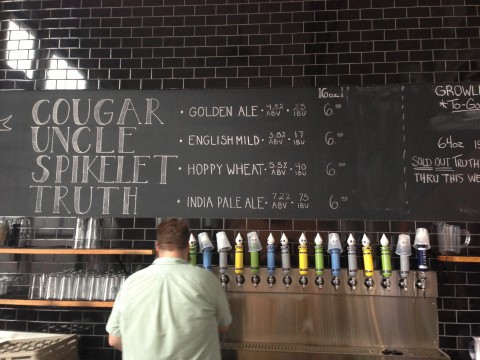 16oz
COUGAR • GOLDEN ALE • 4.8% ABV • 25 IBU 6.00
UNCLE • ENGLISH MILD • 3.8% ABV • 17 IBU 6.00
SPIKELET • HOPPY WHEAT • 5.5% ABV • 40 IBU 6.00
TRUTH • INDIA PALE ALE • 7.2% ABV • 75 IBU 6.00
GROWL
*TO-GO
64oz
SOLD OUT TRUTH
THRU THIS WE